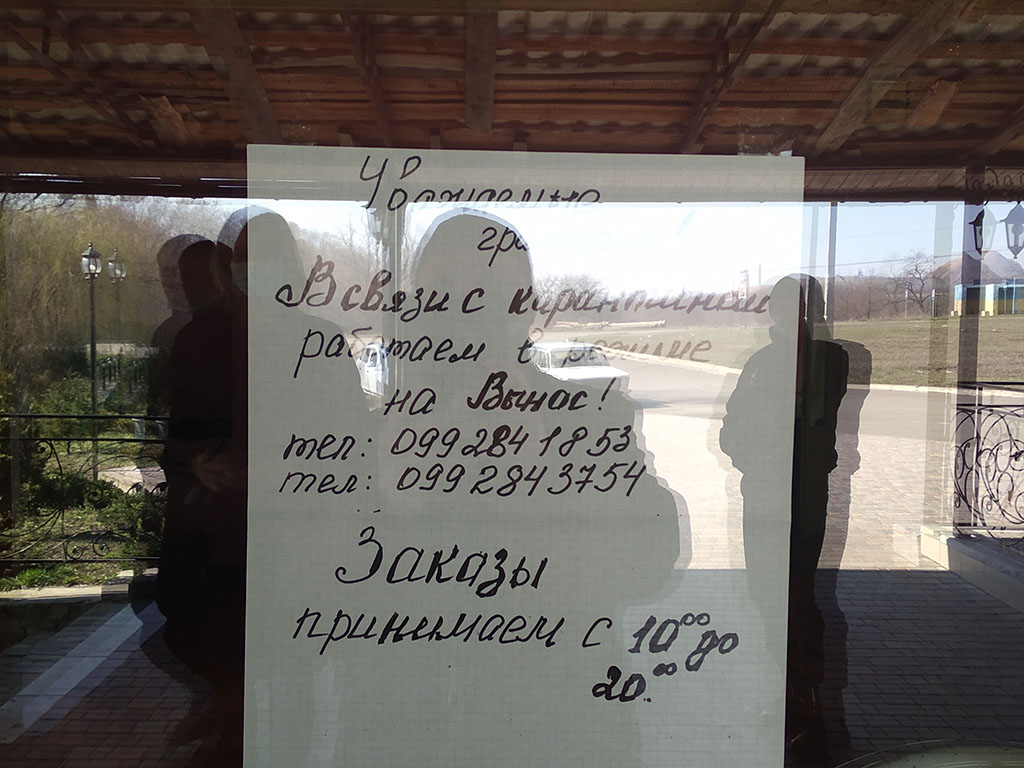 Уважаемые
граждане!
В связи с карантином
работаем в режиме
на Вынос!
тел: 099 284 18 53
тел: 099 284 37 54
Заказы
принимаем с 10⁰⁰ до
20.⁰⁰